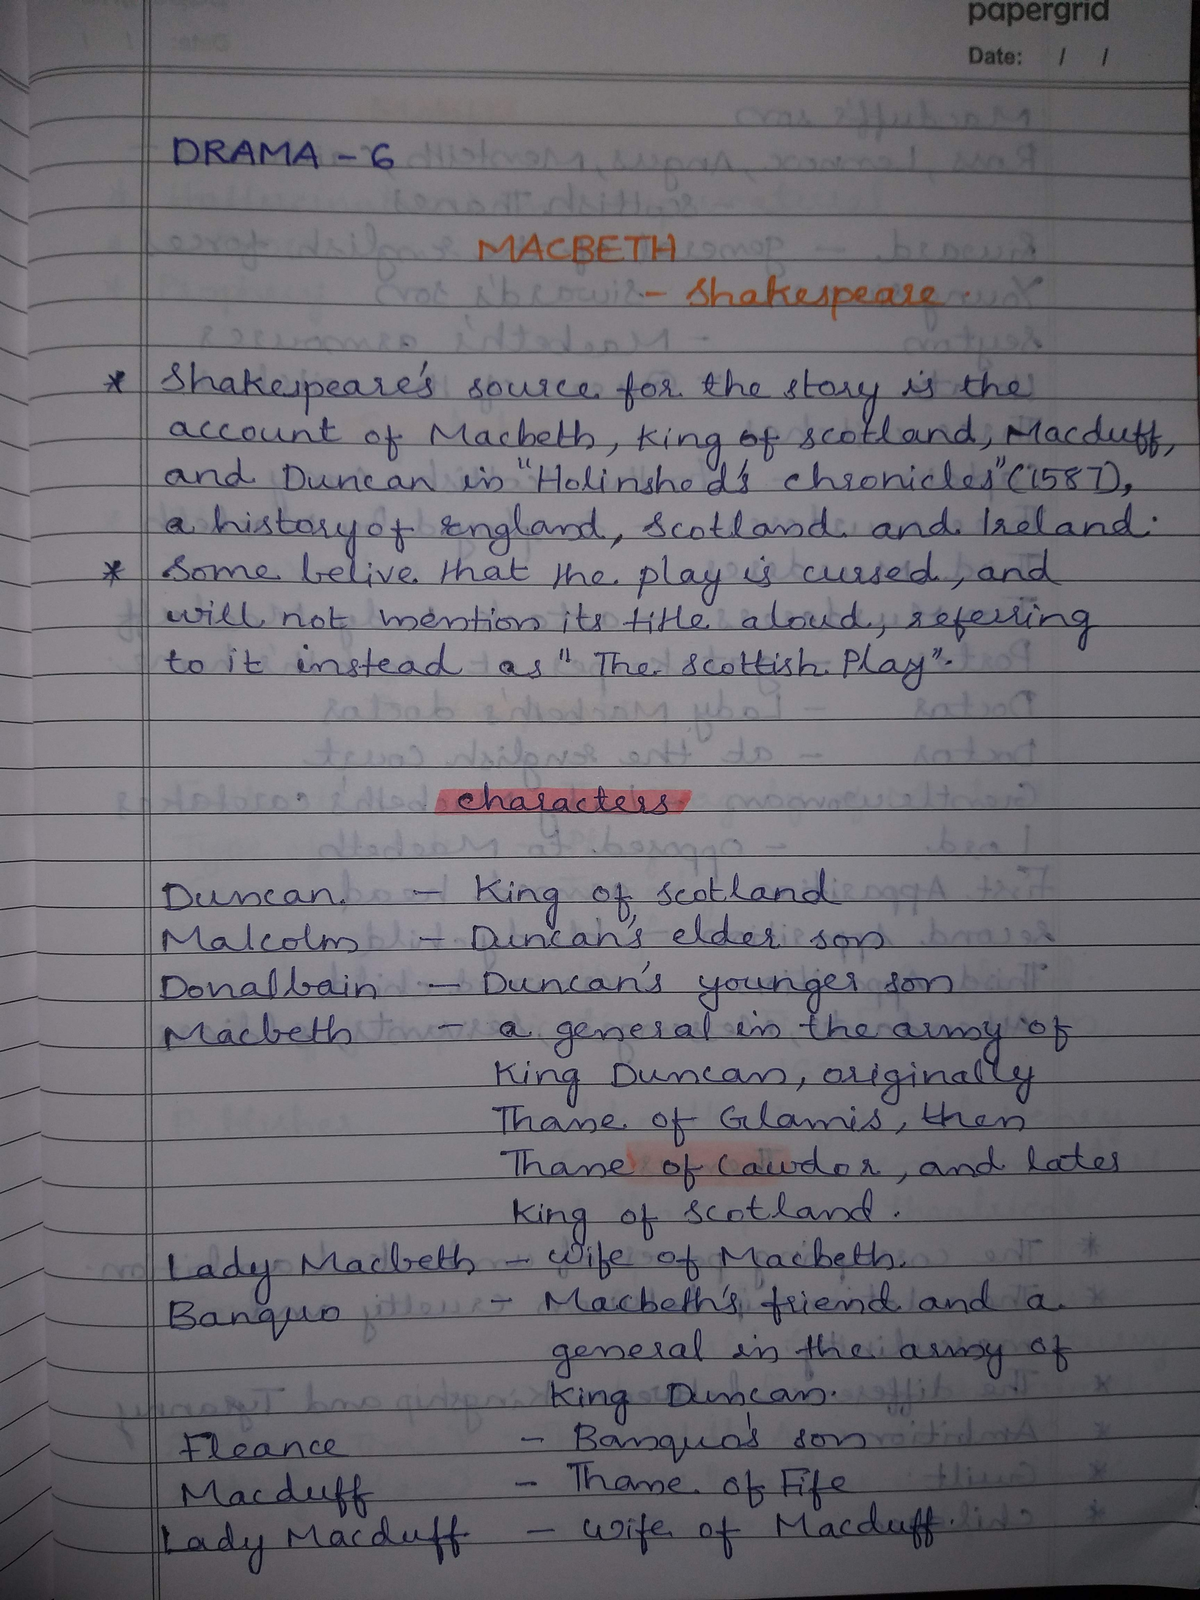 papergrid
Date: / /
DRAMA - 6
MACBETH
- Shakespeare
* Shakespeare's source for the story is the
account of Macbeth, King of scotland, Macduff,
and Duncan in "Holinshed's chronicles" (1587),
a history of England, Scotland and Ireland.
* Some belive that the play is cursed, and
will not mention its title aloud, referring
to it instead as "The scottish Play".
characters
Duncan. - King of scotland
Malcolm - Duncan's elder son
Donalbain - Duncan's younger son
Macbeth - a general in the army of
King Duncan, originally
Thane of Glamis, then
Thane of Cawdor, and later
King of scotland.
Lady Macbeth - wife of Macbeth.
Banquo - Macbeth's friend and a
general in the army of
King Duncan.
Fleance - Banquo's son
Macduff - Thane of Fife
Lady Macduff - wife of Macduff.